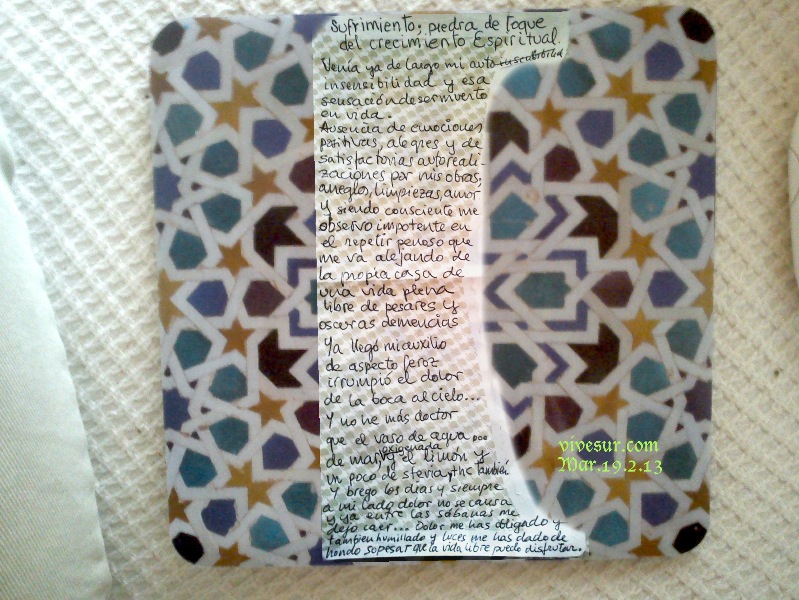 Sufrimiento; piedra de toque
del crecimiento Espiritual
Venía ya de largo mi auto
insensibilidad y esa
sensación de ser muerto
en vida.
Ausencia de emociones
positivas, alegres y de
satisfactorias autoreali-
zaciones por mis obras,
arreglos, limpiezas, amor
y siendo consciente me
observo impotente en
el repetir penoso que
me va alejando de
la propia casa de
una vida plena
libre de pesares y
oscuras demencias
Ya llegó mi auxilio
de aspecto feroz
irrumpió el dolor
de la boca al cielo...
Y no he más doctor
que el vaso de agua...
resignada
de malva, el limón y
un poco de stevia, thc también
Y brego los días y siempre
a mi lado dolor no se cansa
y ya entre las sábanas me
dejo caer... Dolor me has obligado y
tambien humillado y luces me has dado de
hondo sopesar que la vida libre puedo disfrutar.
vivesur.com
Mar.19.2.13